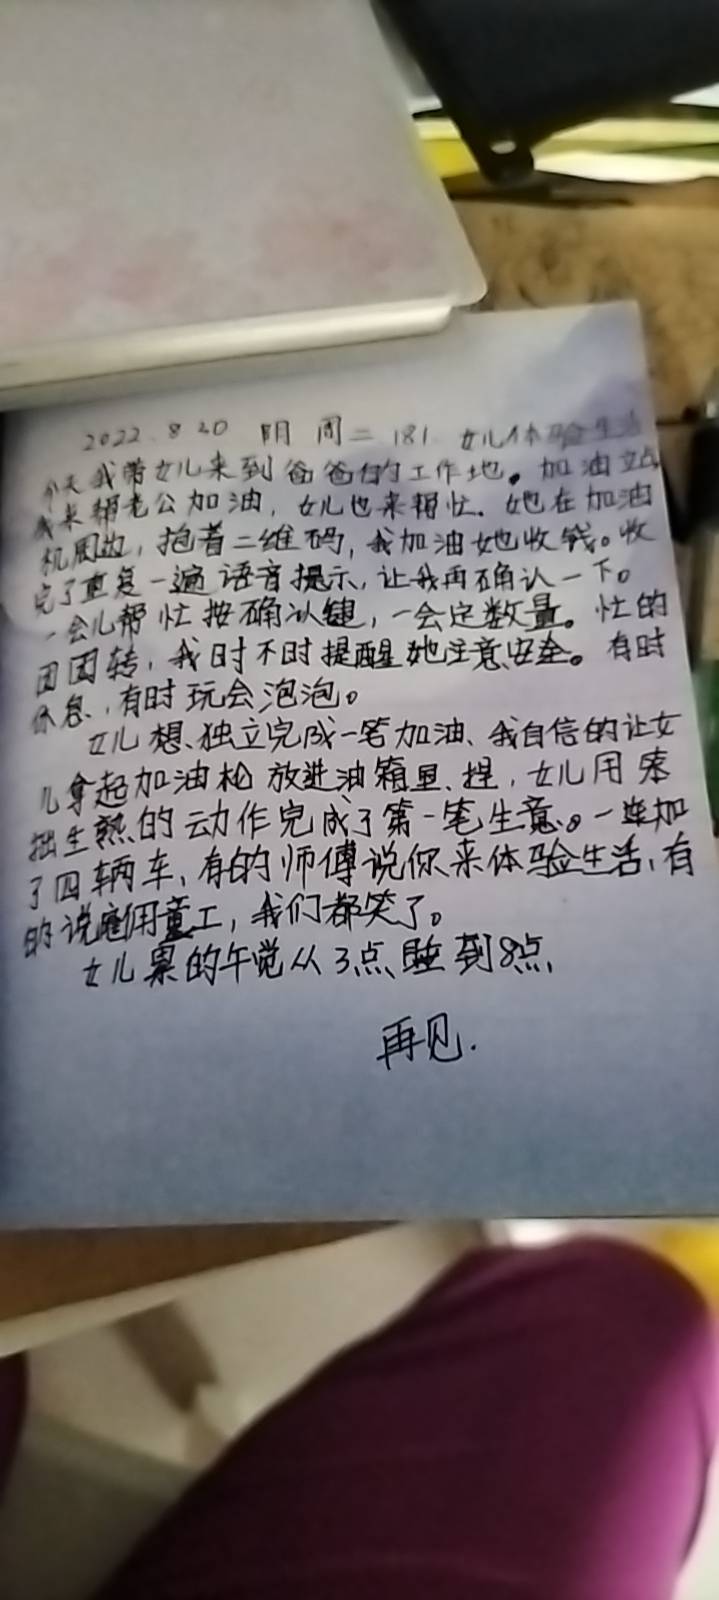 2022.8.30 阴 周二 181. 女儿体验生活
今天我带女儿来到爸爸的工作地。加油站
我来帮老公加油,女儿也来帮忙.她在加油
机周边,抱着二维码,我加油她收钱。收
完了重复一遍语音提示,让我再确认一下。
一会儿帮忙按确认键,一会定数量。忙的
团团转,我时不时提醒她注意安全。有时
休息,有时玩会泡泡。
女儿想、独立完成一笔加油、我自信的让女
儿拿起加油枪放进油箱里、捏,女儿用
拙生熟的动作完成了第一笔生意。一连加
了四辆车,有的师傅说你来体验生活,有
的说雇佣童工,我们都笑了。
女儿累的午觉从3点睡到8点
再见.